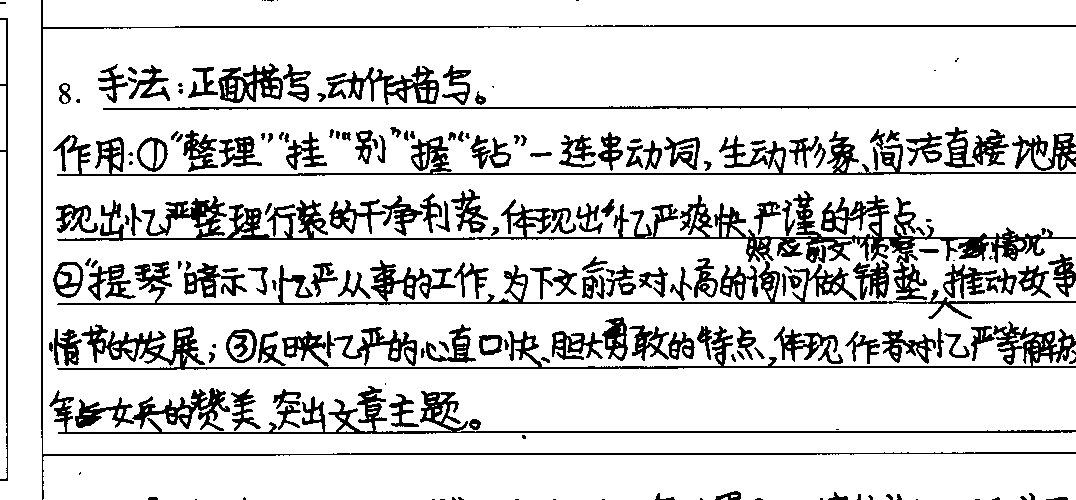 8. 手法:正面描写,动作描写。
作用:①“整理”“挂”“别”“握”“钻”一连串动词,生动形象、简洁直接地展
现出忆严整理行装的干净利落,体现出忆严爽快、严谨的特点;
照应前文“侦察一下情况”
②“提琴”暗示了忆严从事的工作,为下文俞洁对小高的询问做铺垫,推动故事
情节的发展;③反映忆严的心直口快、胆大勇敢的特点,体现作者对忆严等解放
军女兵的赞美,突出文章主题。